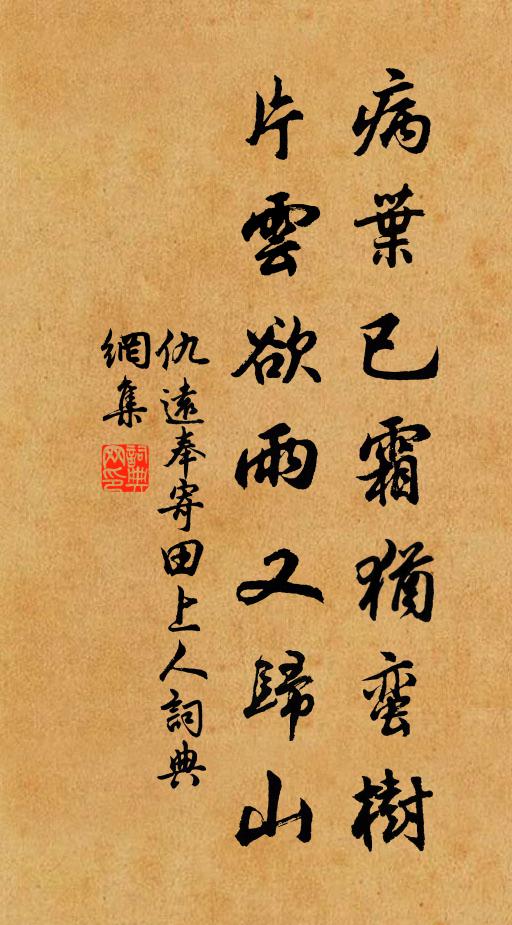 病葉已霜猶蛮樹
片雲欲雨又歸山
仇遠奉寄田上人詞典
網集
詞典
网印